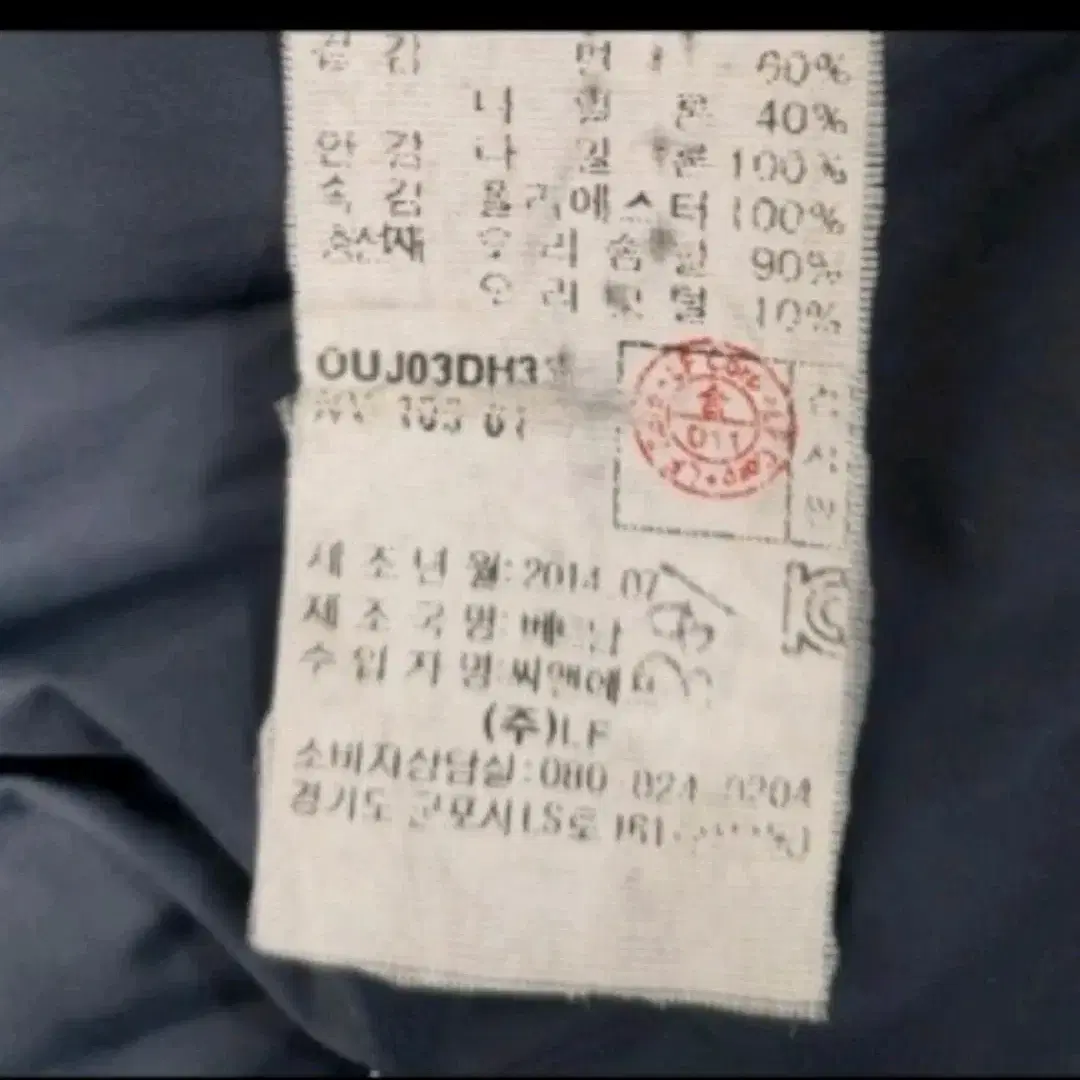 겉 감 면 60%
나 일 론 40%
안 감 나 일 론 100%
속 감 폴리에스터 100%
충전재 오 리 솜 털 90%
오 리 깃 털 10%
OUJ03DH3
LF Corp 011
검사필
제 조 년 월: 2014 07
제 조 국 명: 베트남
수 입 자 명: 씨앤에프
(주)LF
소비자상담실: 080 024 0204
경기도 군포시 LS로 161